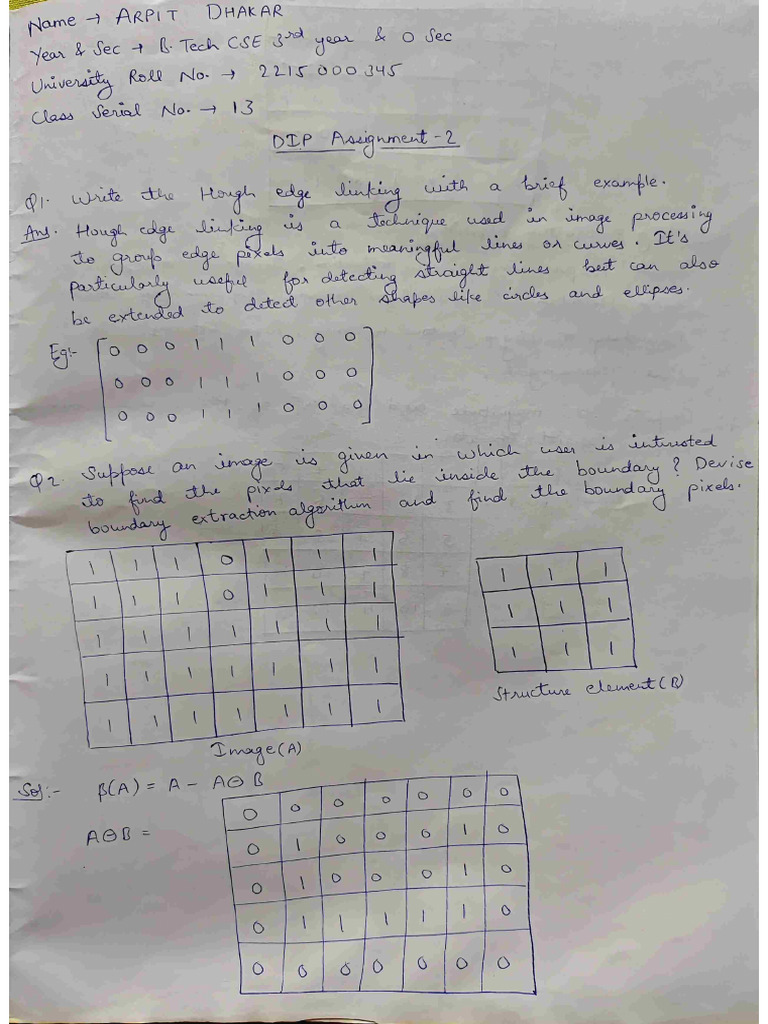 Name → ARPIT DHAKAR
Year & Sec → B. Tech CSE 3rd year & O Sec
University Roll No. → 2215000345
Class Serial No. → 13
DIP Assignment-2
Q1. Write the Hough edge linking with a brief example.
Ans. Hough edge linking is a technique used in image processing
to group edge pixels into meaningful lines or curves. It's
particularly useful for detecting straight lines but can also
be extended to detect other shapes like circles and ellipses.
Eg:- 0 0 0 1 1 1 0 0 0
0 0 0 1 1 1 0 0 0
0 0 0 1 1 1 0 0 0
Q2. Suppose an image is given in which user is intrusted
to find the pixels that lie inside the boundary? Devise
boundary extraction algorithm and find the boundary pixels.
1 1 1 0 1 1 1
1 1 1 0 1 1 1
1 1 1 1 1 1 1
1 1 1 1 1 1 1
1 1 1 1 1 1 1
Image(A)
1 1 1
1 1 1
1 1 1
Structure element(B)
Sol:- β(A) = A - A⊖B
A⊖B =
0 0 0 0 0 0 0
0 1 0 0 0 1 0
0 1 0 0 0 1 0
0 1 1 1 1 1 0
0 0 0 0 0 0 0